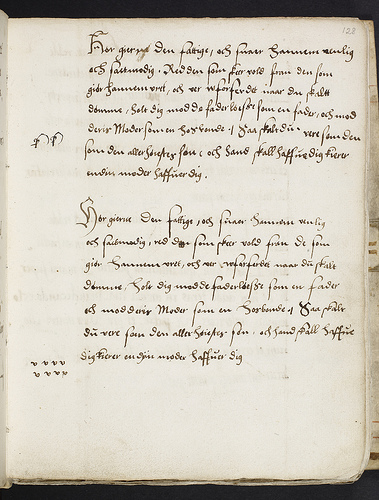 128
Hør gierne den fattige, och suaer hannem venlig
och sactmodig. Red den som skeer vold fran den som
giør hannem vret, och ver wforferdet naar du skalt
dømme, holt dig mod de faderløsse som en fader, och mod
deris Moder som en hosbonde / Saa skalt du vere som den
som den allerhøiestes søn, och hand skall haffue dig kierer
end din moder haffuer dig.
Hør gierne den fattige, och suaer hannem venlig
och sactmodig, red den som skeer vold fra de som
giør hannem vret, och ver wforferdet naar du skalt
dømme, holt dig mod de faderløsse som en fader
och mod deris Moder som en hosbonde / Saa skalt
du vere som den allerhøiestes søn, och hand skall haffue
dig kierer end din moder haffuer dig